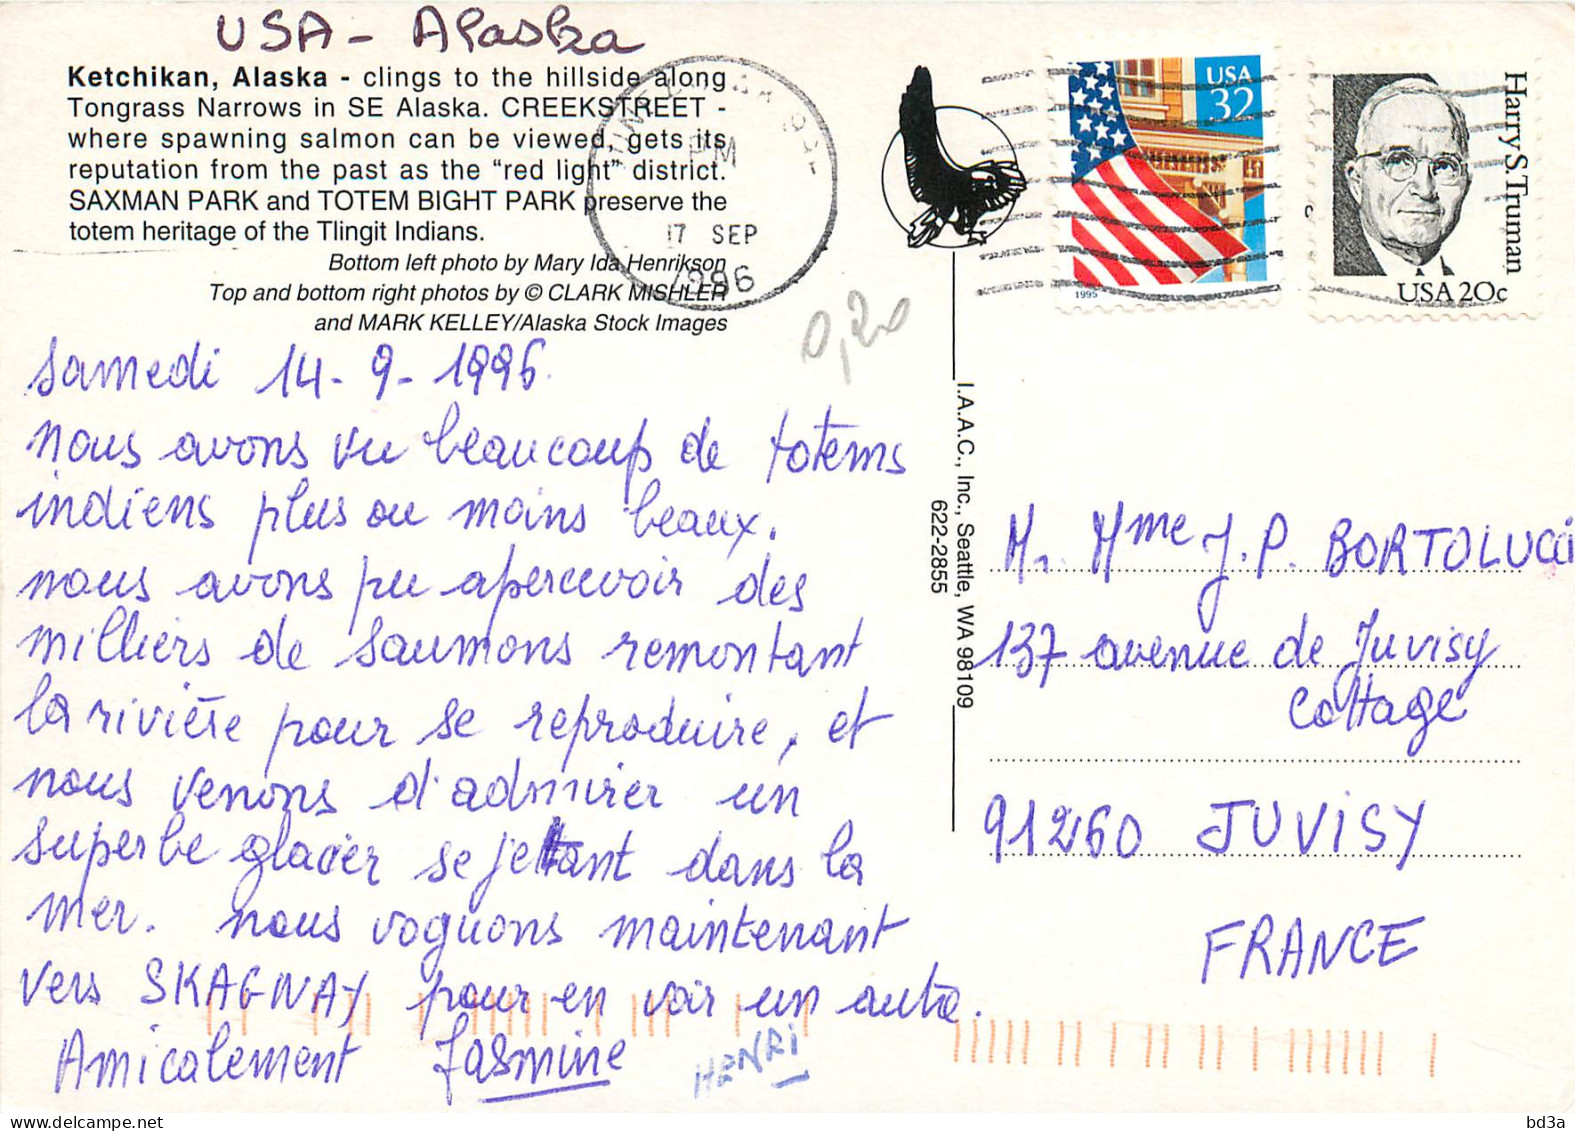 USA - Alaska
Ketchikan, Alaska - clings to the hillside along
Tongrass Narrows in SE Alaska. CREEKSTREET -
where spawning salmon can be viewed, gets its
reputation from the past as the “red light” district.
SAXMAN PARK and TOTEM BIGHT PARK preserve the
totem heritage of the Tlingit Indians.
Bottom left photo by Mary Ida Henrikson
Top and bottom right photos by © CLARK MISHLER
and MARK KELLEY/Alaska Stock Images
PM
17 SEP
1996
USA
32
1995
Harry S. Truman
USA 20c
0,20
samedi 14-9-1996.
nous avons vu beaucoup de totems
indiens plus ou moins beaux.
nous avons pu apercevoir des
milliers de saumons remontant
la rivière pour se reproduire, et
nous venons d'admirer un
superbe glacier se jettant dans la
mer. nous voguons maintenant
vers SKAGWAY pour en voir un autre.
Amicalement Jasmine
HENRI
I.A.A.C., Inc., Seattle, WA 98109
622-2855
M. Mme J.P. BORTOLUCCI
137 avenue de Juvisy
Cottage
91260 JUVISY
FRANCE
bd3a